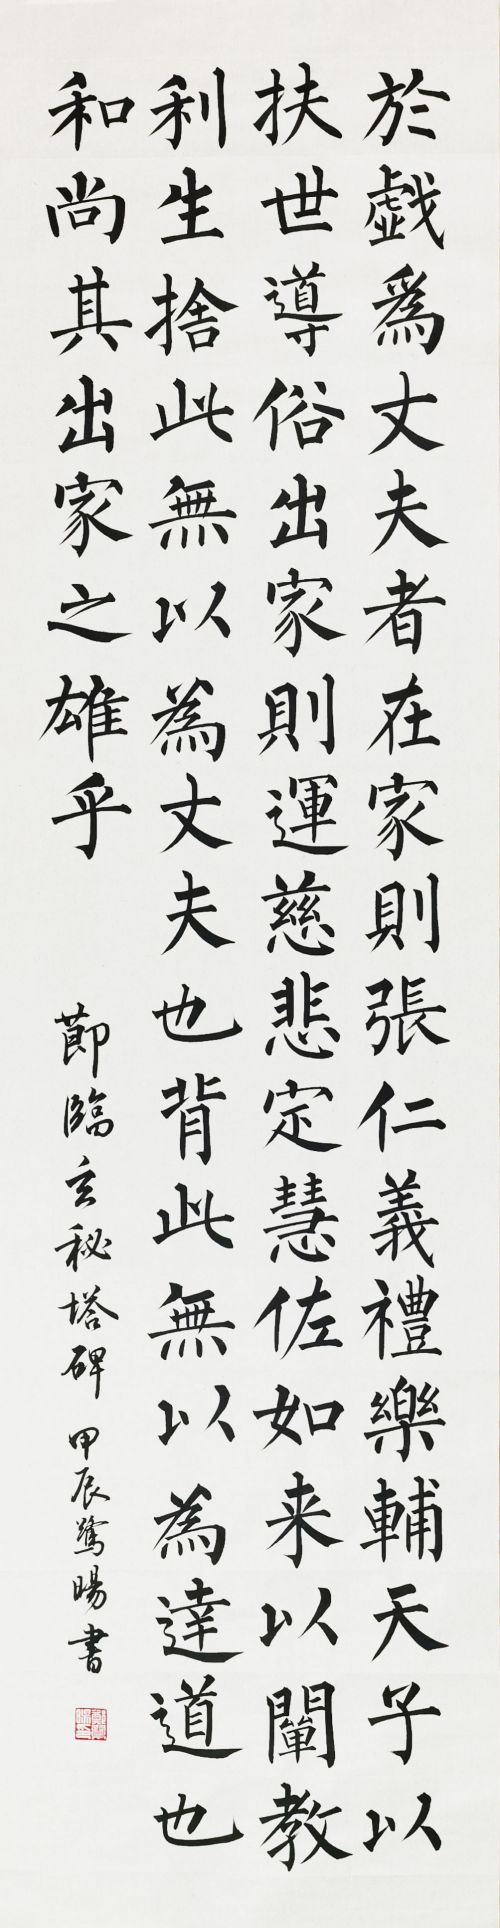 於戯爲丈夫者在家則張仁義禮樂輔天子以
扶世導俗出家則運慈悲定慧佐如来以闡教
利生捨此無以為丈夫也背此無以為達道也
和尚其出家之雄乎
節臨玄秘塔碑 甲辰鷺暘書